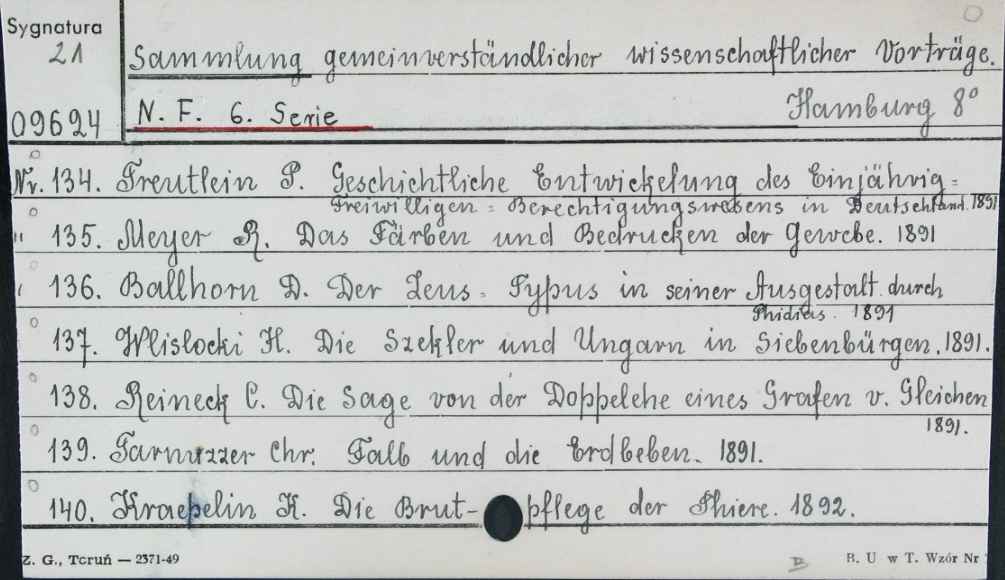 Sygnatura
21
Sammlung gemeinverständlicher wissenschaftlicher Vorträge.
09624
N. F. 6. Serie Hamburg 8°
Nr. 134. Freutlein P. Geschichtliche Entwickelung des Einjährig=
Freiwilligen = Berechtigungswesens in Deutschland. 1891
" 135. Meyer R. Das Färben und Bedrucken der Gewebe. 1891
136. Ballhorn D. Der Zeus-Typus in seiner Ausgestalt. durch
Phidias. 1891
137. Wlislocki H. Die Szekler und Ungarn in Siebenbürgen. 1891.
138. Reineck C. Die Sage von der Doppelehe eines Grafen v. Gleichen
1891.
139. Tarnuzzer Chr. Falb und die Erdbeben. 1891.
140. Kraepelin K. Die Brut-pflege der Thiere. 1892.
Z. G., Toruń — 2371-49
B. U w T. Wzór Nr